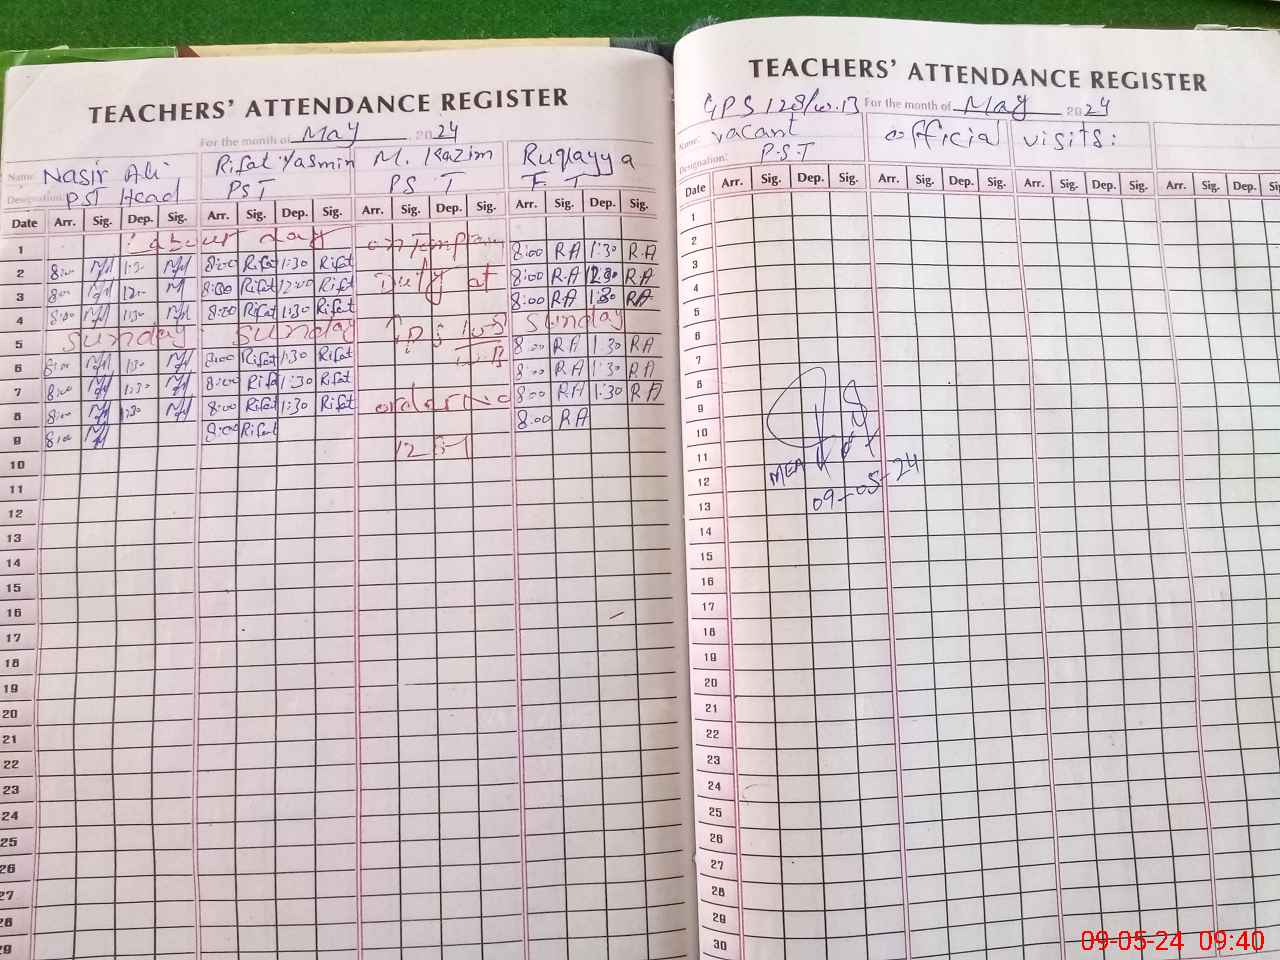 TEACHERS' ATTENDANCE REGISTER
For the month of May 2024
Name Nasir Ali Rifat Yasmin M. Kazim Ruqayya
Designation: PST Head PST PST
Date Arr. Sig. Dep. Sig. Arr. Sig. Dep. Sig. Arr. Sig. Dep. Sig. Arr. Sig. Dep. Sig.
1 day 8:00 RA 1:30 RA
2 8:00 1:30 8:00 Rifat 1:30 Rifat Duty at 8:00 RA RA
3 8:00 8:00 Rifat 12:00 Rifat 8:00 RA 1:30 RA
4 8:00 1:30 8:00 Rifat 1:30 Rifat
5 Sunday Sunday Sunday
6 8:00 1:30 8:00 Rifat 1:30 Rifat 8:00 RA 1:30 RA
7 8:00 1:30 8:00 Rifat 1:30 Rifat 8:00 RA 1:30 RA
8 8:00 1:30 8:00 Rifat 1:30 Rifat 8:00 RA 1:30 RA
9 8:00 8:00 Rifat 8:00 RA
10
11
12
13
14
15
16
17
18
19
20
21
22
23
24
25
26
27
28
29
TEACHERS' ATTENDANCE REGISTER
GPS For the month of May 2024
Name: vacant official visits:
Designation: P.S.T
Date Arr. Sig. Dep. Sig. Arr. Sig. Dep. Sig. Arr. Sig. Dep. Sig. Arr. Sig. Dep.
1
2
3
4
5
6
7
8
9
10
11
12 MEA
13 09-05-24
14
15
16
17
18
19
20
21
22
23
24
25
26
27
28
29
30
09-05-24 09:40